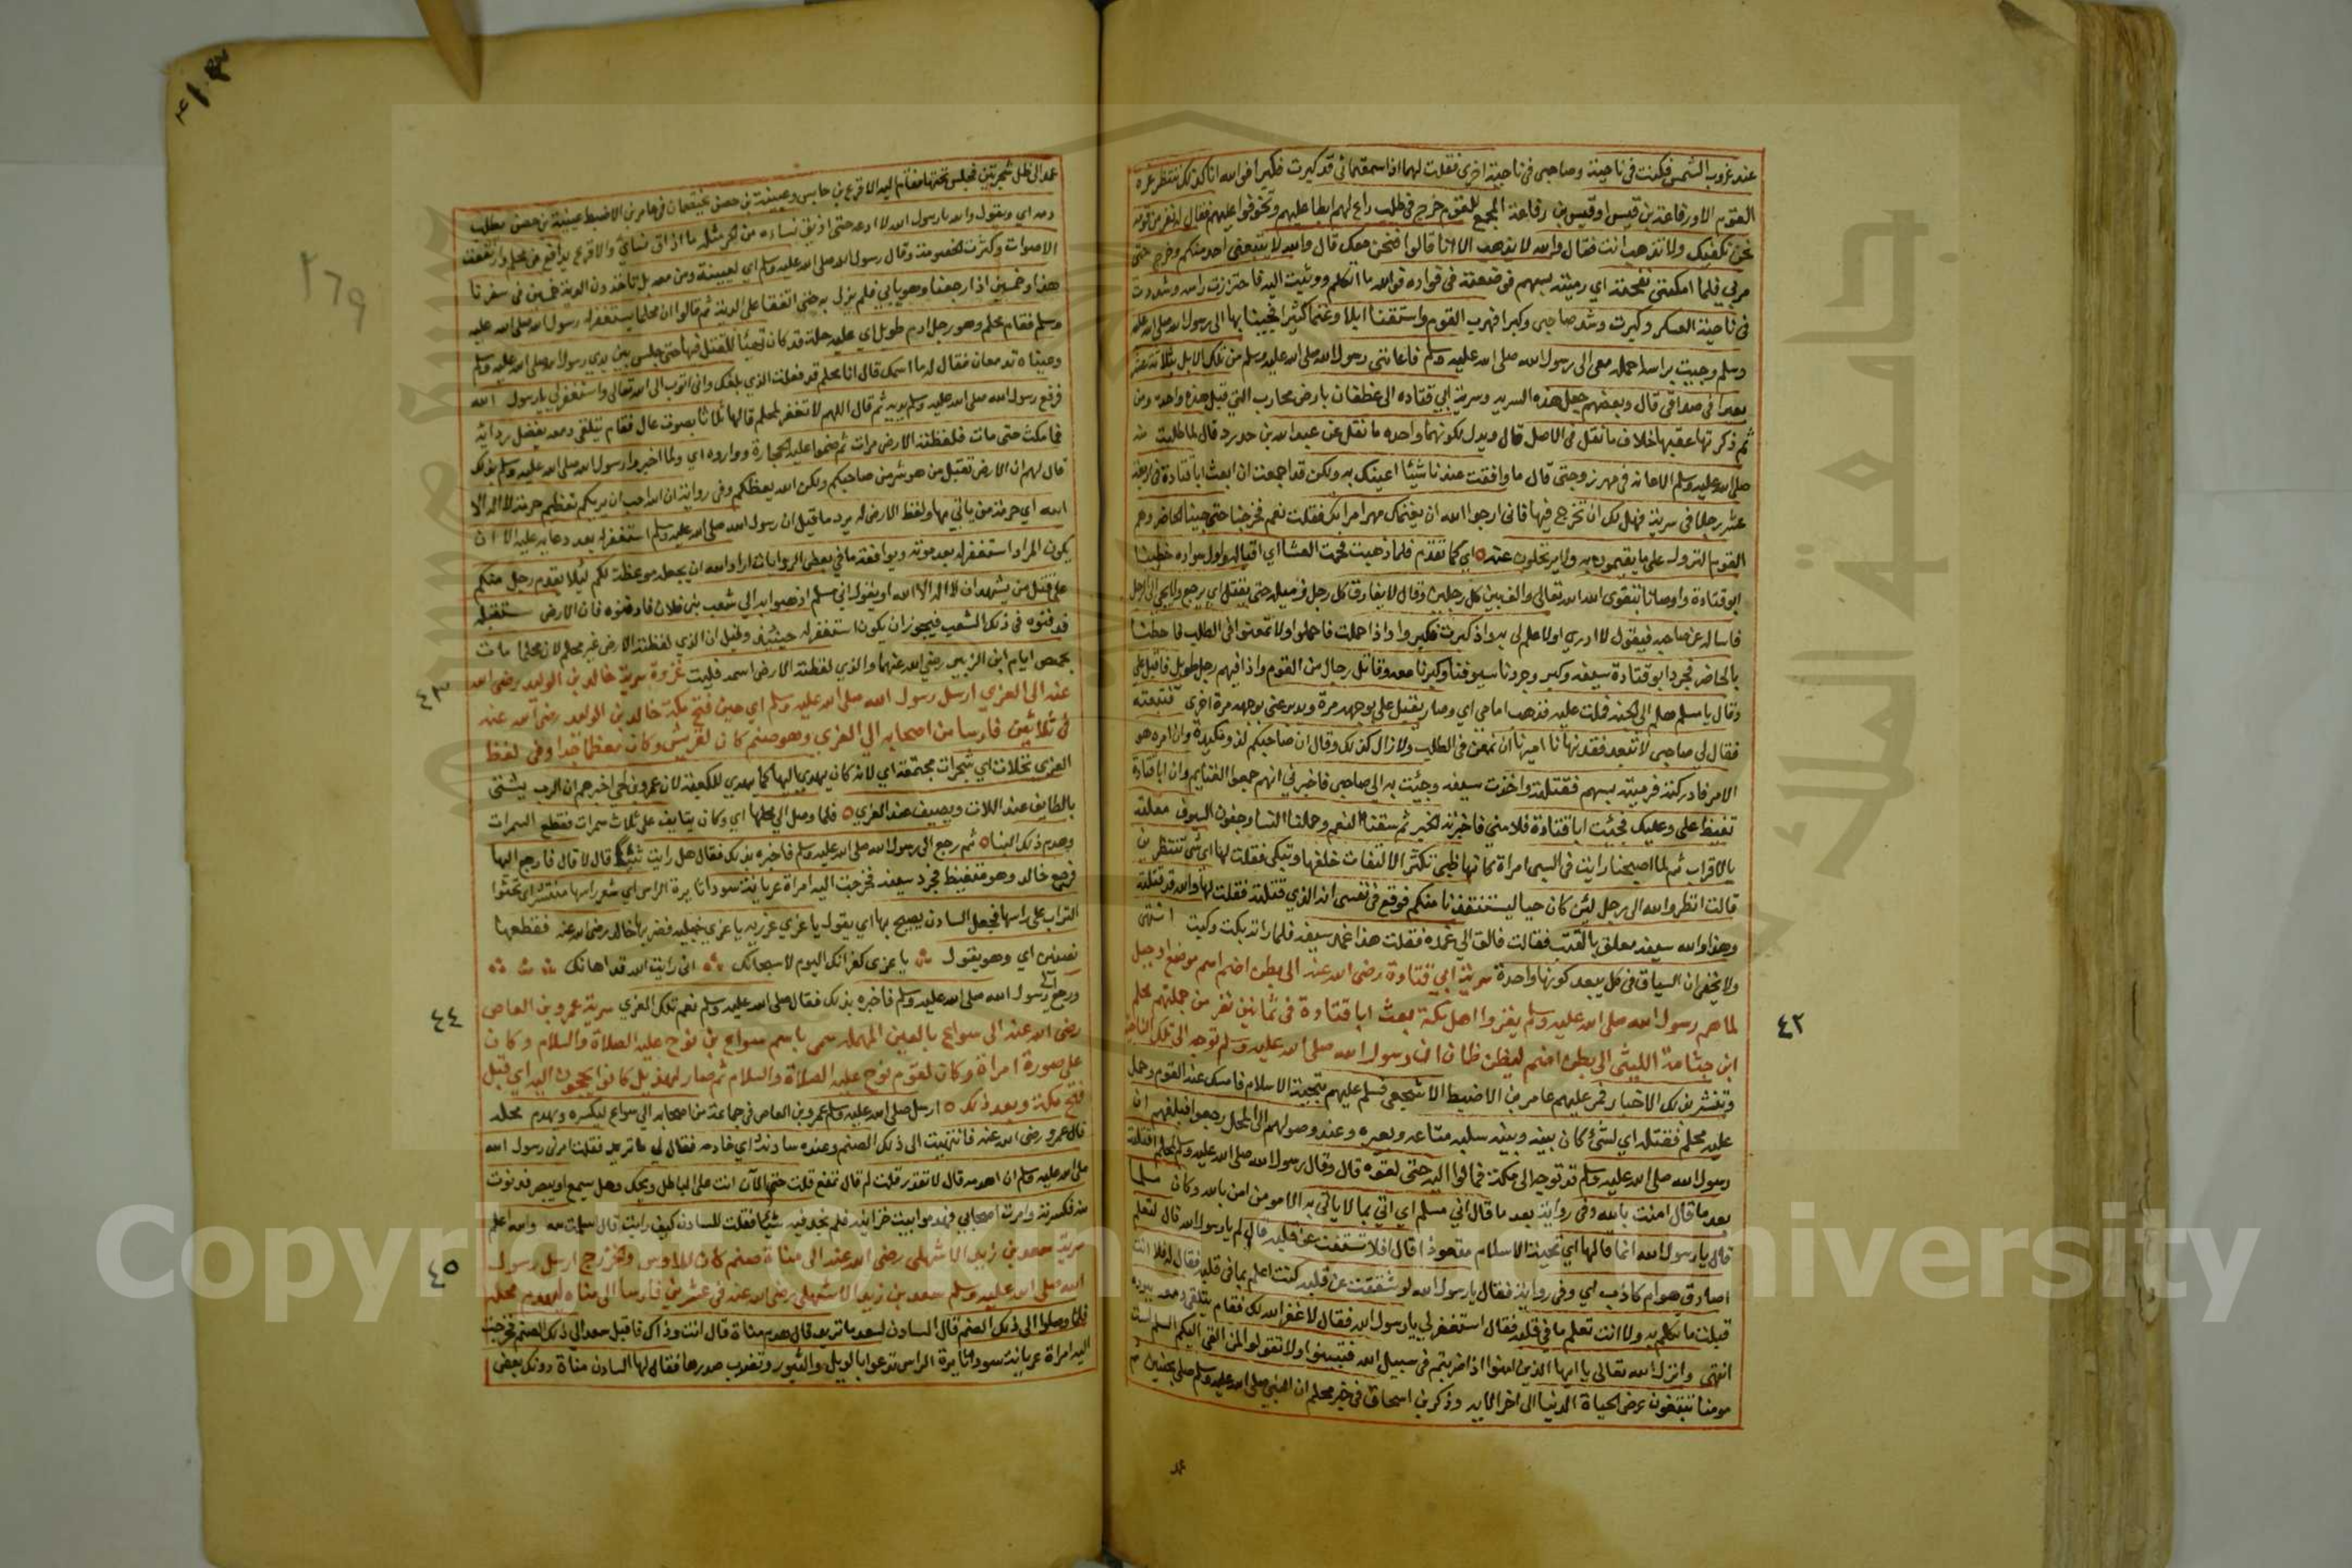 عند غروب الشمس فكمنت في ناحية وصاحبي في ناحية اخرى فقلت لهما اذا سمعتماني قد كبرت فكبرا فوالله انا كذلك ننتظر غرة
القوم الا ورفاعة بن قيس او قيس بن رفاعة المجمع للقوم خرج في طلب راع لهم ابطا عليهم وتخوفوا عليه فقال له نفر من قومه
نحن نكفيك ولا تذهب انت فقال والله لا يذهب الا انا قالوا فنحن معك قال والله لا يتبعني احد منكم وخرج حتى
مر بي فلما امكنني نفحته اي رميته بسهم فوضعته في فواده فوالله ما تكلم ووثبت اليه فاحتززت راسه وشددت
في ناحية العسكر وكبرت وشد صاحبي وكبرا فهرب القوم واستقنا ابلا وغنما كثيرا فجينا بها الى رسول الله صلى الله عليه
وسلم وجيت براسه احمله معي الى رسول الله صلى الله عليه وسلم فاعانني رسول الله صلى الله عليه وسلم من تلك الابل بثلاثة عشر
بعيرا في صداقي قال وبعضهم جعل هذه السرية وسرية ابي قتاده الى غطفان بارض محارب التي قبل هذه واحدة ومن
ثم ذكرتها عقبها خلاف ما نقل في الاصل قال ويدل لكونهما واحده ما نقل عن عبد الله بن حدرد قال لما طلبت منه
صلى الله عليه وسلم الاعانة في مهر زوجتي قال ما وافقت عندنا شيئا اعينك به ولكن قد اجمعت ان ابعث ابا قتادة في اربعة
عشر رجلا في سرية فهل لك ان تخرج فيها فاني ارجوا الله ان يغنمك مهر امراتك فقلت نعم فخرجنا حتى جينا الحاضر وهم
القوم النزول على ما يقيمون به ولا يرتحلون عنه اي كما تقدم فلما ذهبت فحمة العشا اي اقباله واول سواده خطبنا
ابو قتادة واوصانا بتقوى الله تعالى والف بين كل رجلين وقال لا يفارق كل رجل زميله حتى يقتل اي يرجع ولا يجي الي الرجل
فاساله عن صاحبه فيقول لا ادري او لا علم لي به واذا كبرت فكبروا واذا حملت فاحملوا ولا تمعنوا في الطلب فاحطنا
بالحاضر فجرد ابو قتادة سيفه وكبر وجردنا سيوفنا وكبرنا معه وقاتل رجال من القوم واذا فيهم رجل طويل فاقبل علي
وقال يا مسلم هلم الى الجنة فملت عليه فذهب امامي اي وصار يقبل علي بوجهه مرة ويدبر عني بوجهه مرة اخرى فتبعته
فقال لي صاحبي لا تبعد فقد نهانا اميرنا ان نمعن في الطلب ولا زال كذلك وقال ان صاحبكم لذو مكيدة وان امره هو
الامر فادركته فرميته بسهم فقتلته واخذت سيفه وجئت به الى صاحبي فاخبرني انهم جمعوا الغنايم وان ابا قتادة
تغيظ علي وعليك فجئت ابا قتادة فلامني فاخبرته الخبر ثم سقنا النعم وحملنا النسا وجفون السيوف معلقة
بالاقتاب ثم لما اصبحنا رايت في السبي امراة كانها ظبي تكثر الالتفات خلفها وتبكي فقلت لها اي شي تنظرين
قالت انظر والله الى رجل لئن كان حيا ليستنقذنا منكم فوقع في نفسي انه الذي قتلته فقلت لها والله قد قتلته
وهذا والله سيفه معلق بالقتب فقالت فالق الي غمده فقلت هذا غمد سيفه فلما راته بكت وكيت انتهى
ولا يخفى ان السياق في كل يبعد كونها واحدة سرية ابي قتادة رضي الله عنه الى بطن اضم اسم موضع او جبل
لما هم رسول الله صلى الله عليه وسلم يغزوا اهل مكة بعث ابا قتادة في ثمانية نفر من جملتهم محلم
ابن جثامة الليثي الى بطن اضم ليظن ظان ان رسول الله صلى الله عليه وسلم توجه الى تلك الناحية
وتنتشر بذلك الاخبار فمر عليهم عامر بن الاضبط الاشجعي فسلم عليهم بتحية الاسلام فامسك عنه القوم وحمل
عليه محلم فقتله اي لشئ كان بينه وبينه سلبه متاعه وبعيره وعند وصولهم الى المحل رجعوا فبلغهم ان
رسول الله صلى الله عليه وسلم قد توجه الى مكة فمالوا اليه حتى لقوه قال وقال رسول الله صلى الله عليه وسلم لمحلم اقتلته
بعد ما قال امنت بالله وفي رواية بعد ما قال اني مسلم اي اتى بما لا ياتي به الا مومن امن بالله وكان مسلما
قال يا رسول الله انما قالها اي تحية الاسلام متعوذا قال افلا شققت عن قلبه قال لم يا رسول الله قال لتعلم
اصادق هو ام كاذب اي وفي رواية فقال يا رسول الله لو شققت عن قلبه كنت اعلم بما في قلبه فقال له فلا انت
قبلت ما تكلم به ولا انت تعلم ما في قلبه فقال استغفر لي يا رسول الله فقال لا غفر الله لك فقام يتلقى دمعه ببرده
انتهى وانزل الله تعالى يا ايها الذين امنوا اذا ضربتم في سبيل الله فتبينوا ولا تقولوا لمن القى اليكم السلم لست
مومنا تبتغون عرض الحياة الدنيا الى اخر الايه وذكر بن اسحاق في خبر محلم ان النبي صلى الله عليه وسلم صلى بحنين ثم
٤٢
عمد الى ظل شجرة فجلس تحتها فقام اليه الاقرع بن حابس وعيينة بن حصن يختصمان في عامر بن الاضبط عيينة بن حصن يطلب
دمه اي ويقول والله يا رسول الله لا ادعه حتى اذيق نساءه من الحر مثل ما اذاق نسائي والاقرع يدافع عن محلم وارتفعت
الاصوات وكثرت الخصومة وقال رسول الله صلى الله عليه وسلم اي لعيينة ومن معه بل تاخذون الدية خمسين في سفرنا
هذا وخمسين اذا رجعنا وهو يابى فلم يزل به حتى اتفقا على الدية ثم قالوا ان محلما يستغفر له رسول الله صلى الله عليه
وسلم فقام محلم وهو رجل ادم طويل اي عليه حلة قد كان تهيأ للقتل فيها حتى جلس بين يدي رسول الله صلى الله عليه وسلم
وعيناه تدمعان فقال له ما اسمك قال انا محلم قد فعلت الذي بلغك واني اتوب الى الله تعالى واستغفر لي يا رسول الله
فرفع رسول الله صلى الله عليه وسلم يديه ثم قال اللهم لا تغفر لمحلم قالها ثلاثا بصوت عال فقام يتلقى دمعه بفضل ردائه
فما مكث حتى مات فلفظته الارض مرات ثم ضموا عليه الحجارة وواروه اي ولما اخبروا رسول الله صلى الله عليه وسلم بذلك
قال لهم ان الارض تقبل من هو شر من صاحبكم ولكن الله يعظكم وفي رواية ان الله احب ان يريكم تعظيم حرمة لا اله الا
الله اي حرمة من ياتي بها ولفظ الارض له يرد ما قيل ان رسول الله صلى الله عليه وسلم استغفر له بعد دعايه عليه الا ان
يكون المراد استغفر له بعد موته ويوافقه ما في بعض الروايات اراد الله ان يجعله موعظة لكم لئلا يقدم رجل منكم
على قتل من يشهد ان لا اله الا الله او يقول اني مسلم اذهبوا به الى شعب بني فلان فادفنوه فان الارض ستقبله
فدفنوه في ذلك الشعب فيجوز ان يكون استغفر له حينئذ وقيل ان الذي لفظته الارض غير محلم لان محلما مات
بحمص ايام ابن الزبير رضي الله عنهما والذي لفظته الارض اسمه فليت غزوة سرية خالد بن الوليد رضي الله
عنه الى العزي ارسل رسول الله صلى الله عليه وسلم اي حين فتح مكة خالد بن الوليد رضي الله عنه
في ثلاثين فارسا من اصحابه الي العزي وهو صنم كان لقريش وكان معظما جدا وفي لفظ
العزي نخلات اي شجرات مجتمعة اي لانه كان يهدي اليها كما يهدي للكعبة لان عمرو بن لحي اخبرهم ان الرب يشتي
بالطايف عند اللات ويصيف عند العزي فلما وصل الي محلها اي وكان بنايه على ثلاث سمرات فقطع السمرات
وهدم ذلك البنا ثم رجع الى رسول الله صلى الله عليه وسلم فاخبره بذلك فقال هل رايت شيئا قال لا قال فارجع اليها
فرجع خالد وهو متغيظ فجرد سيفه فخرجت اليه امراة عريانة سودا ثايرة الراس اي شعر راسها منتشر اي تحثوا
التراب على راسها فجعل السادن يصيح بها اي يقول يا عزي عزريه يا عزي خبليه فضربها خالد رضي الله عنه فقطعها
نصفين اي وهو يقول يا عزى كفرانك اليوم لا سبحانك اني رايت الله قد اهانك
ورجع الى رسول الله صلى الله عليه وسلم فاخبره بذلك فقال صلى الله عليه وسلم نعم تلك العزي سرية عمرو بن العاص
رضي الله عنه الى سواع بالعين المهملة سمي باسم سواع بن نوح عليه الصلاة والسلام وكان
على صورة امراة وكان لقوم نوح عليه الصلاة والسلام ثم صار لهذيل كانوا يحجون اليه اي قبل
فتح مكة وبعد ذلك ارسل صلى الله عليه وسلم عمرو بن العاص في جماعة من اصحابه الى سواع ليكسره ويهدم محله
قال عمرو رضي الله عنه فانتهيت الى ذلك الصنم وعنده سادنه اي خادمه فقال لي ما تريد فقلت امرني رسول الله
صلى الله عليه وسلم ان اهدمه قال لا تقدر قلت لم قال تمنع قلت حتى الآن انت على الباطل ويحك وهل يسمع او يبصر فدنوت
منه فكسرته وامرت اصحابي فهدموا بيت خزانته فلم نجد فيه شيئا فقلت للسادن كيف رايت قال سلمت لله والله اعلم
سرية سعد بن زيد الاشهلي رضي الله عنه الى مناة صنم كان للاوس والخزرج ارسل رسول
الله صلى الله عليه وسلم سعد بن زيد الاشهلي رضي الله عنه في عشرين فارسا الى مناه ليهدم محله
فلما وصلوا الى ذلك الصنم قال السادن لسعد ما تريد قال هدم مناة قال انت وذاك فاقبل سعد الى ذلك الصنم فخرجت
اليه امراة عريانة سودا ثايرة الراس تدعوا بالويل والثبور وتضرب صدرها فقال لها السادن مناة دونك بعض
٤٣
٤٤
٤٥
١٦٩
Copyright © King Saud University
جامعة الملك سعود